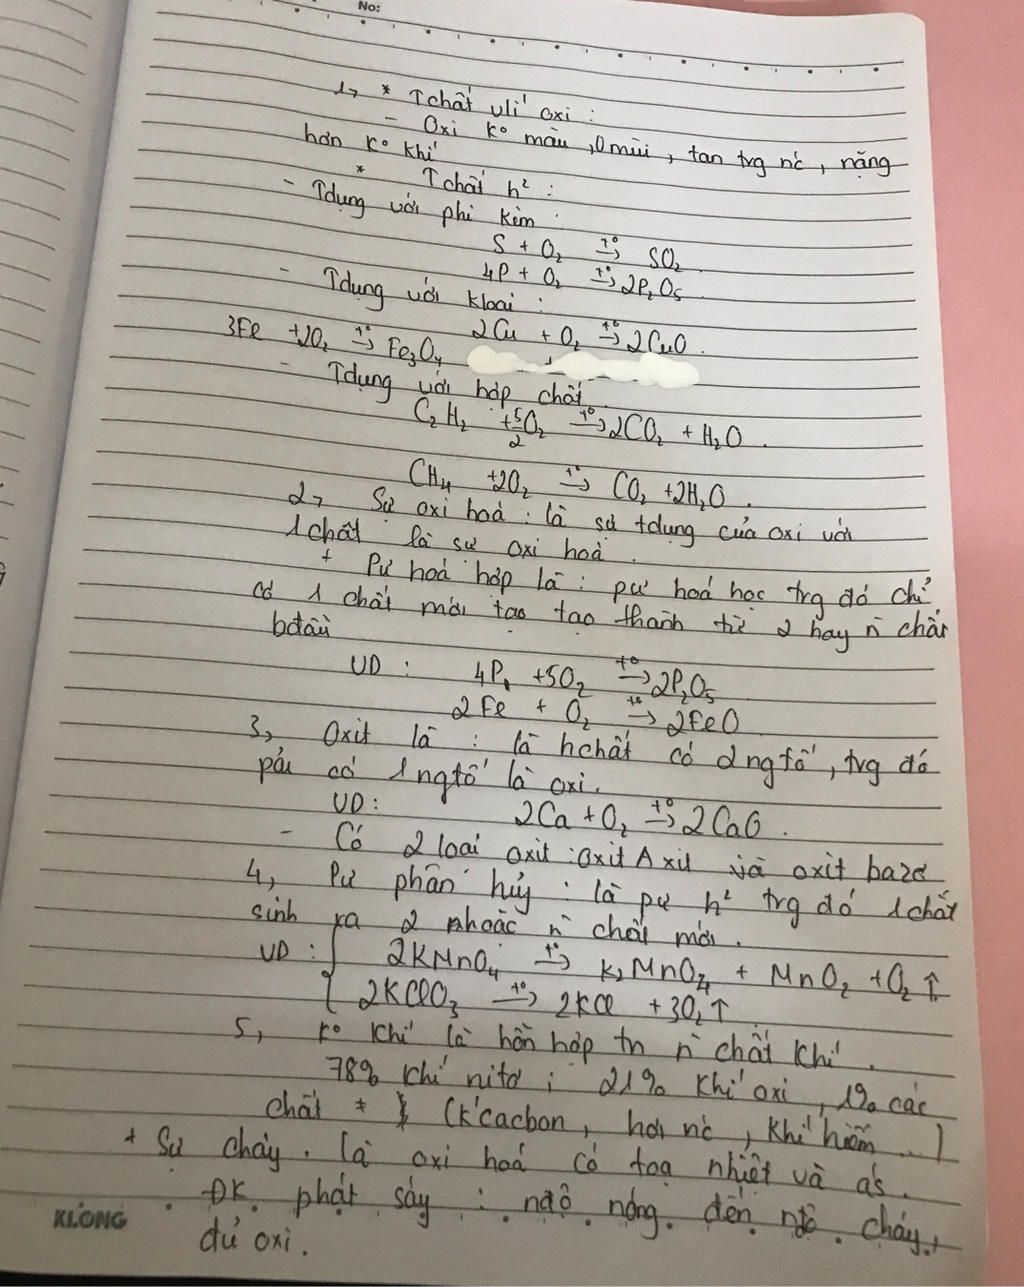 No:
1, * Tchất vlí oxi :
- Oxi ko màu, 0 mùi, tan trg nc, nặng
hơn ko khí
* Tchất h² :
- Tdụng với phi kim :
S + O₂ →t° SO₂
4P + O₂ →t° 2P₂O₅
- Tdụng với kloại :
2Cu + O₂ →t° 2CuO.
3Fe + 2O₂ →t° Fe₃O₄
- Tdụng với hợp chất
C₂H₂ + 5/2 O₂ →t° 2CO₂ + H₂O.
CH₄ + 2O₂ →t° CO₂ + 2H₂O.
2, Sự oxi hoá : là sự tdụng của oxi với
1 chất là sự oxi hoá.
+ Pư hoá hợp là : pư hoá học trg đó chỉ
có 1 chất mới tạo tạo thành từ 2 hay n chất
bđầu
VD : 4P + 5O₂ →t° 2P₂O₅
2Fe + O₂ →t° 2FeO
3, Oxit là : là hchất có 2 ngtố, trg đó
pải có 1 ngtố là oxi.
VD: 2Ca + O₂ →t° 2CaO.
- Có 2 loại oxit : oxit Axit và oxit bazơ
4, Pư phân hủy : là pư h² trg đó 1 chất
sinh ra 2 hoặc n chất mới.
VD : { 2KMnO₄ →t° K₂MnO₄ + MnO₂ + O₂ ↑
2KClO₃ →t° 2KCl + 3O₂ ↑
5, ko khí là hỗn hợp tn n chất khí.
78% khí nitơ ; 21% khí oxi, 1% các
chất ≠ (k' cacbon, hơi nc, khí hiếm...)
+ Sự cháy. là oxi hoá có toạ nhiệt và as.
ĐK phát sáy : nđộ nóng đến nđộ cháy,
đủ oxi.
KLONG